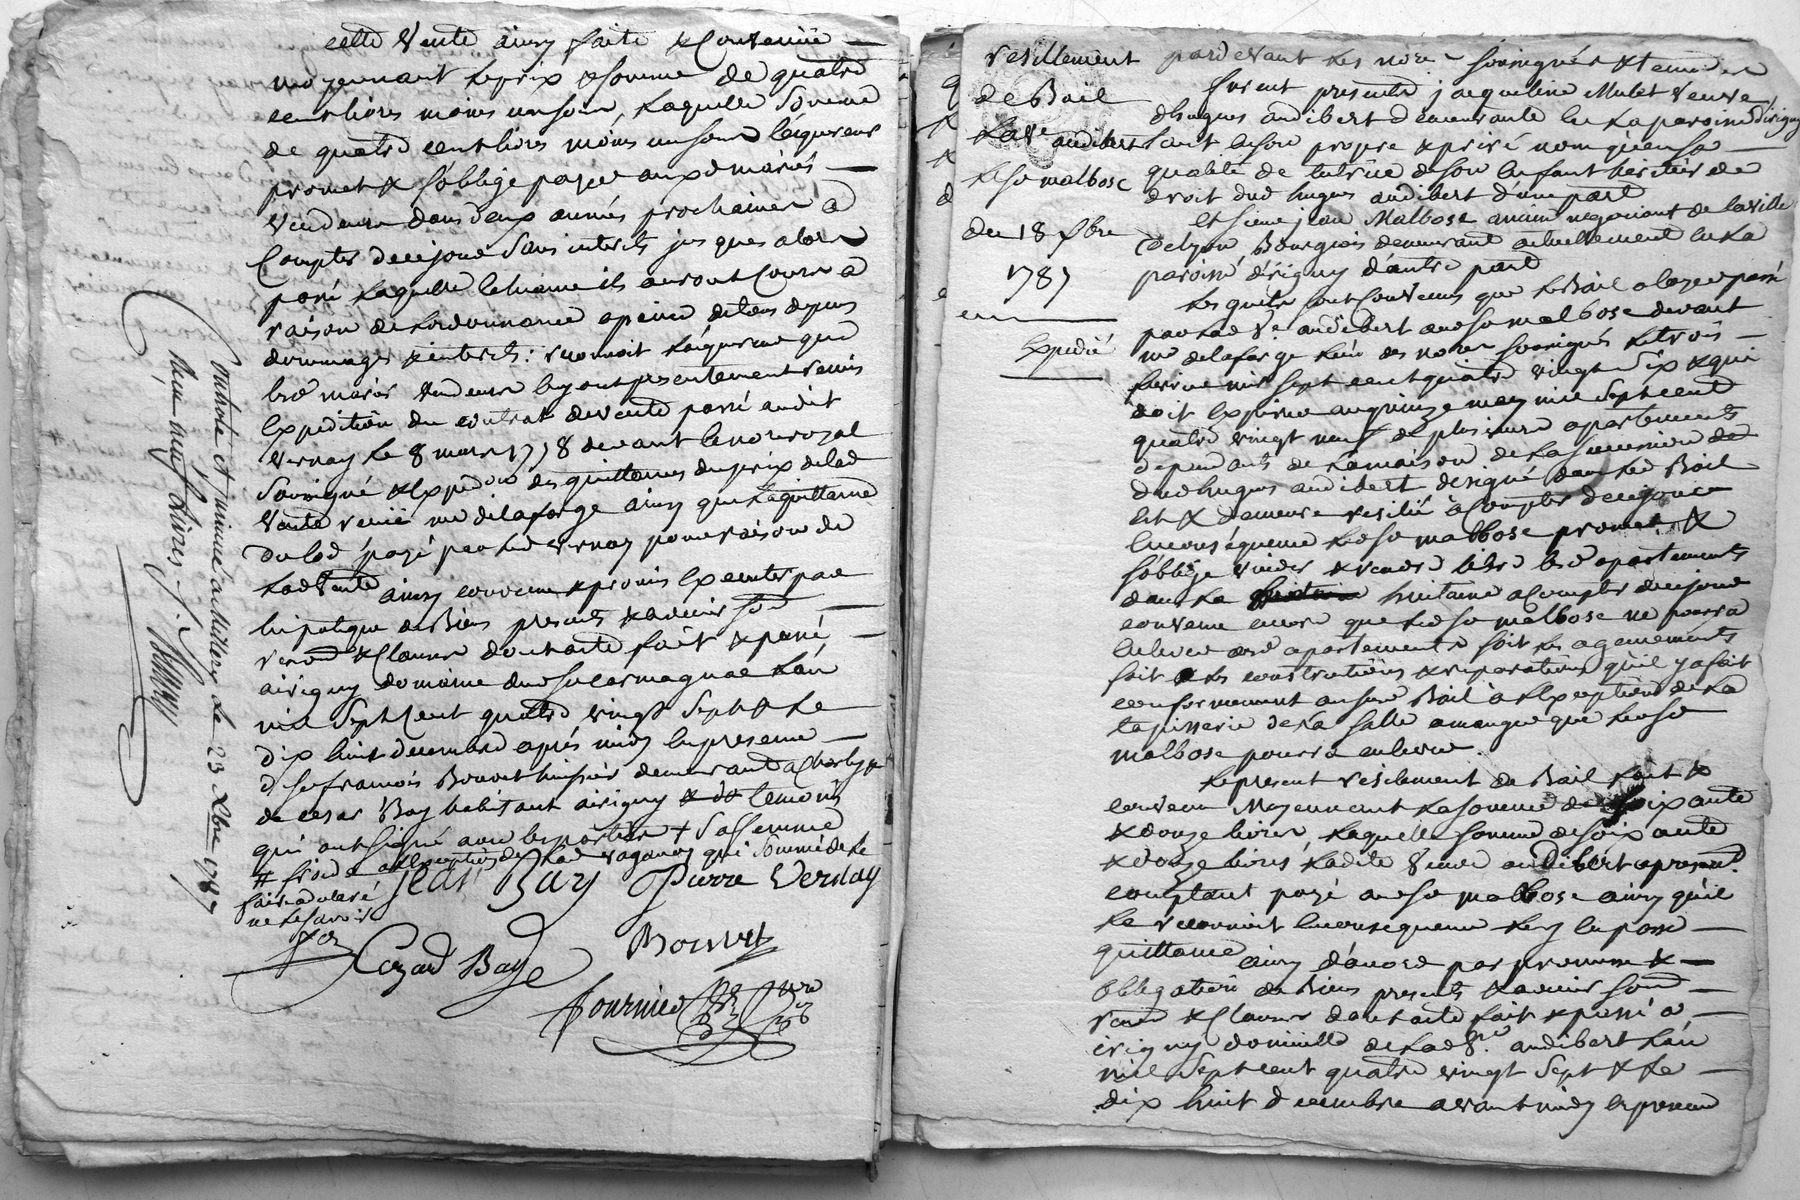 cette vente ainsy faite & Convenüe
moyennant le prix & somme de quatre
cent livres moins un sou, laquelle somme
de quatre cent livres moins un sou l'acquereur
promet & s'obblige payer auxd mariés
vendeurs dans deux années prochaines a
Compter de ce jour sans interets jusques alors
passé laquelle echeance ils auront Cours a
raison de l'ordonnance a peine de tous depens
dommages & interets: reconnoit l'acquereur que
lesd mariés vendeurs luy ont presentement remis
Expedition du contrat de vente passé audit
vernay le 8 mars 1778 devant le nore royal
soussigné & Expedons des quittances du prix de lad
vente reçüe me delaforge ainsy que la quittance
du lod payé par led vernay pour raison de
lad vente ainsy convenu & promis Executer par
hipoteque de Biens presents & avenir sous
renon & Clauses dont acte fait & passé
a irigny domaine dud sr carmagnac l'an
mil sept Cent quatre vingt sept & le
dix huit decembre après midy en presence
de sr françois Bouvet huissier demeurant a Charly &
de cesar Bay habitant a irigny temoins
qui ont signé avec les parties + sa femme
# froid a l'Exception de lad vaganay qui sommée de le
faire a declaré
ne le savoir
Jean Bay Pierre Vernay
Cezard Baye Bouvet
fournier nore
Controlé et insinué a Millery le 23 Xbre 1787
reçu neuf livres
resillement
de Bail
La ve audibert
le sr malbosc
du 18 Xbre
1787
Expedié
pardevant les nore soussignés & temoins
furent presents jacqueline Mulet veuve
d'hugues audibert demeurante en la paroisse d'irigny
tant en son propre & privé nom qu'en sa
qualité de tutrice de son enfant heritier de
droit dud hugues audibert d'une part
Et sieur jean Malbosc ancien negociant de la ville
de lyon Bourgeois demeurant actuellement en la
paroisse d'irigny d'autre part
Lesquels sont Convenus que le Bail a loyer passé
par lad ve audibert aud sr malbosc devant
me delaforge l'un des nores soussignés le trois
fevrier mil sept cent quatre vingt six & qui
doit Expirer au quinze may mil sept cent
quatre vingt neuf de plusieurs apartements
dependants de la maison de la succession de
dud hugues audibert designé dans led Bail
est & demeure resilié a Compter de ce jour
en consequence led sr malbosc promet &
s'obblige vuider & rendre libre lesd apartements
dans la huitaine a Compter de ce jour
convenu encore que led sr malbosc ne pourra
enlever desd apartements soit les agencements
soit les constructions & reparations qu'il y a fait
conformement au sus Bail a l'Exception de la
tapisserie de la salle a manger que led sr
malbosc pourra enlever.
Le present resilement de Bail fait &
convenu Moyennant la somme de soixante
& douze livres, laquelle somme de soixante
& douze livres, ladite veuve audibert a present.
comptant payé aud sr malbosc ainsy qu'il
le reconnoit en consequence luy en passe
quittance ainsy d'accord par promesse &
obbligation de Biens presents & avenir sous
renon & Clauses dont acte fait & passé a
irigny domicille de lad ve audibert l'an
mil sept cent quatre vingt sept & le
dix huit decembre avant midy en presence